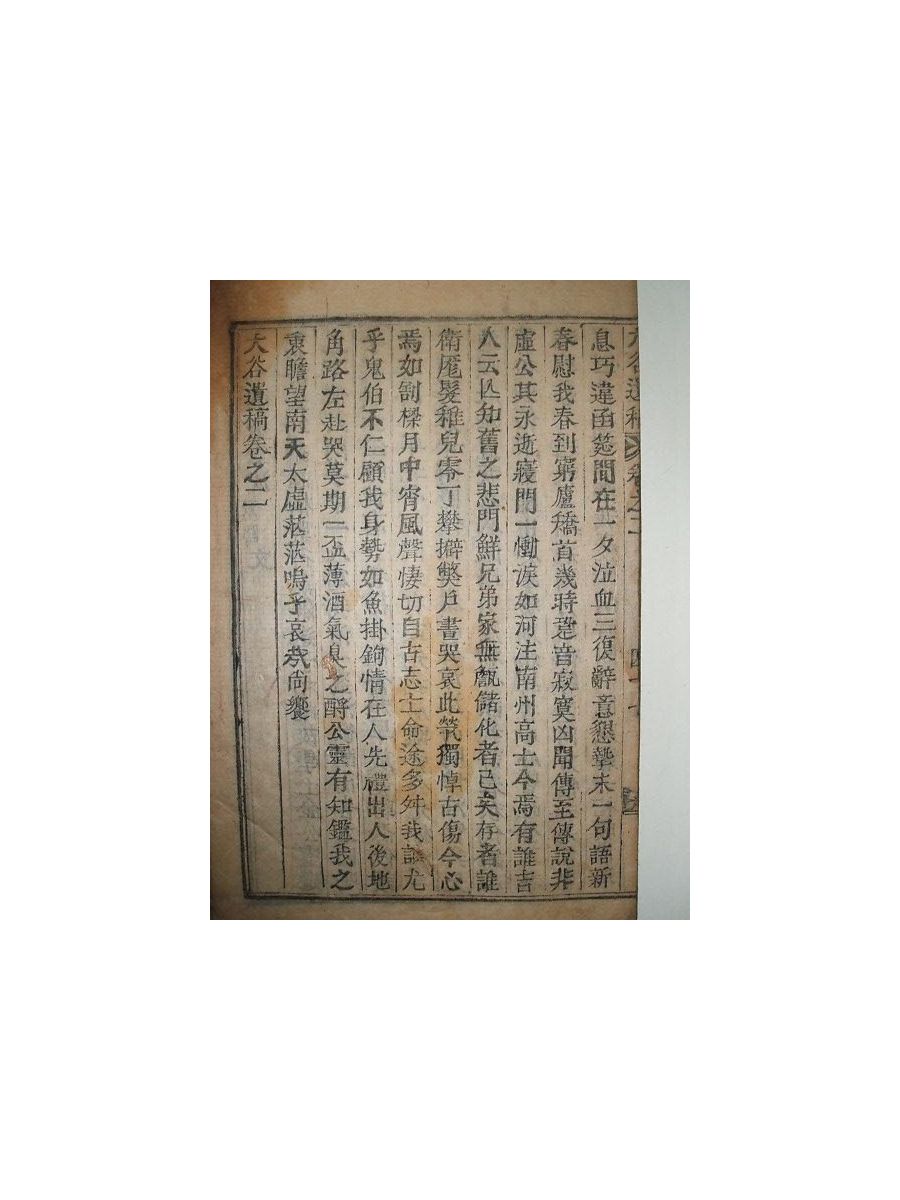 大谷遺稿 卷之二
息巧違函筵間在一夕泣血三復辭意懇摯末一句語新
春慰我春到窮廬矯首幾時跫音寂寞凶聞傳至傳說非
虛公其永逝寢門一慟淚如河注南州高士今焉有誰吉
人云亾知舊之悲門鮮兄弟家無甔儲化者已矣存者誰
衛髦髮稚兒零丁攀擗獘戶晝哭哀此煢獨悼古傷今心
焉如割樑月中宵風聲悽切自古志士命途多舛我誰尤
乎鬼伯不仁顧我身勢如魚掛鉤情在人先禮出人後地
角路左赴哭莫期一盃薄酒氣臭之酹公靈有知鑑我之
衷瞻望南天太虛茫茫嗚乎哀哉尙饗
大谷遺稿卷之二